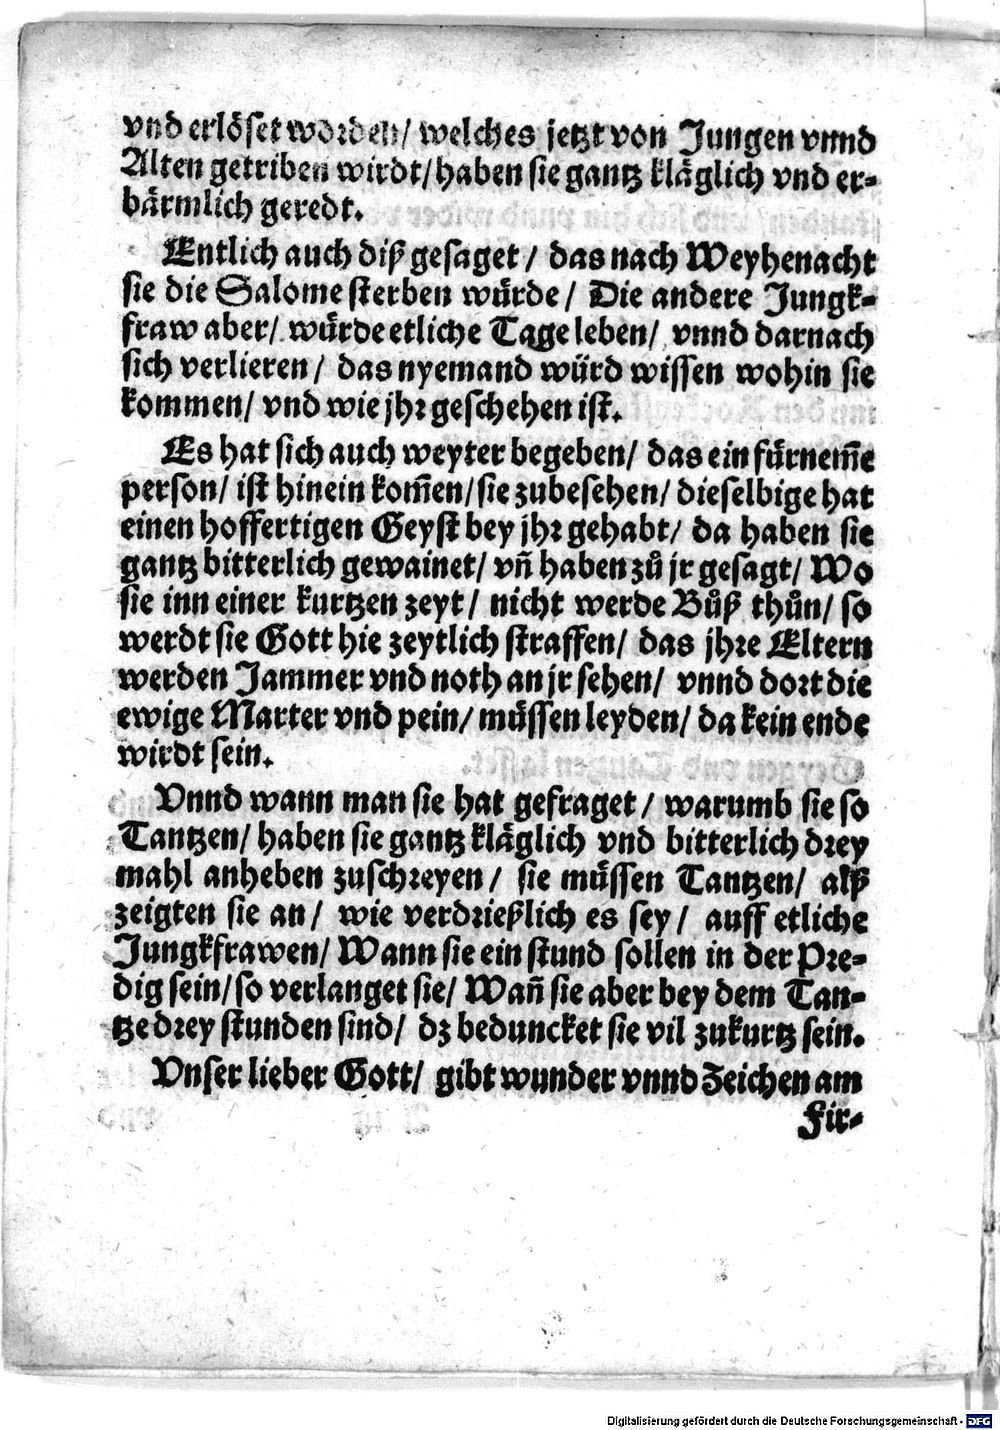 vnd erlöset worden/ welches jetzt von Jungen vnnd
Alten getriben wirdt/ haben sie gantz kläglich vnd er-
bärmlich geredt.
Entlich auch diß gesaget / das nach Weyhenacht
sie die Salome sterben würde / Die andere Jungk-
fraw aber/ würde etliche Tage leben/ vnnd darnach
sich verlieren / das nyemand würd wissen wohin sie
kommen/ vnd wie jhr geschehen ist.
Es hat sich auch weyter begeben/ das ein fürnem̃e
person/ ist hinein kom̃en/ sie zubesehen/ dieselbige hat
einen hoffertigen Geyst bey jhr gehabt/ da haben sie
gantz bitterlich gewainet/ vñ haben zů jr gesagt/ Wo
sie inn einer kurtzen zeyt / nicht werde Bůß thůn/ so
werdt sie Gott hie zeytlich straffen/ das jhre Eltern
werden Jammer vnd noth an jr sehen/ vnnd dort die
ewige Marter vnd pein/ müssen leyden/ da kein ende
wirdt sein.
Vnnd wann man sie hat gefraget / warumb sie so
Tantzen/ haben sie gantz kläglich vnd bitterlich drey
mahl anheben zuschreyen / sie müssen Tantzen/ alß
zeigten sie an / wie verdrießlich es sey / auff etliche
Jungkfrawen/ Wann sie ein stund sollen in der Pre-
dig sein/ so verlanget sie/ Wañ sie aber bey dem Tan-
tze drey stunden sind/ dz beduncket sie vil zukurtz sein.
Vnser lieber Gott/ gibt wunder vnnd Zeichen am
Fir-
Digitalisierung gefördert durch die Deutsche Forschungsgemeinschaft - DFG